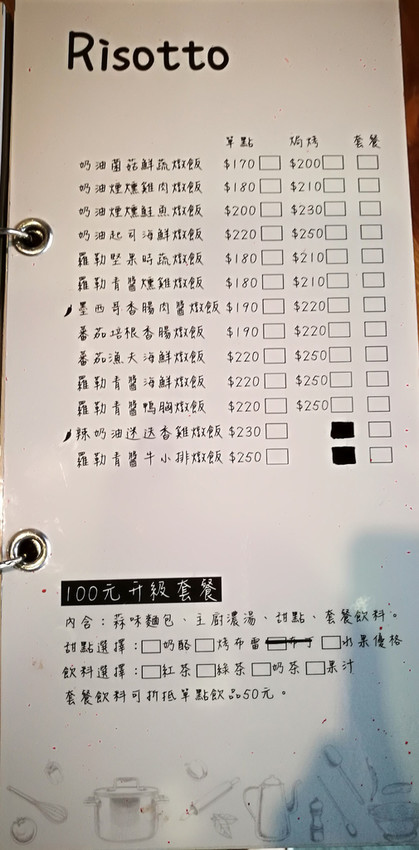 Risotto
單點 焗烤 套餐
奶油菌菇鮮蔬燉飯 $170 $200
奶油煙燻雞肉燉飯 $180 $210
奶油煙燻鮭魚燉飯 $200 $230
奶油起司海鮮燉飯 $220 $250
羅勒堅果時蔬燉飯 $180 $210
羅勒青醬燻雞燉飯 $180 $210
墨西哥香腸肉醬燉飯 $190 $220
番茄培根香腸燉飯 $190 $220
番茄漁夫海鮮燉飯 $220 $250
羅勒青醬海鮮燉飯 $220 $250
羅勒青醬鴨胸燉飯 $220 $250
辣奶油迷迭香雞燉飯 $230
羅勒青醬牛小排燉飯 $250
100元升級套餐
內含：蒜味麵包、主廚濃湯、甜點、套餐飲料。
甜點選擇：□奶酪 □烤布蕾 □水果優格
飲料選擇：□紅茶 □綠茶 □奶茶 □果汁
套餐飲料可折抵單點飲品50元。